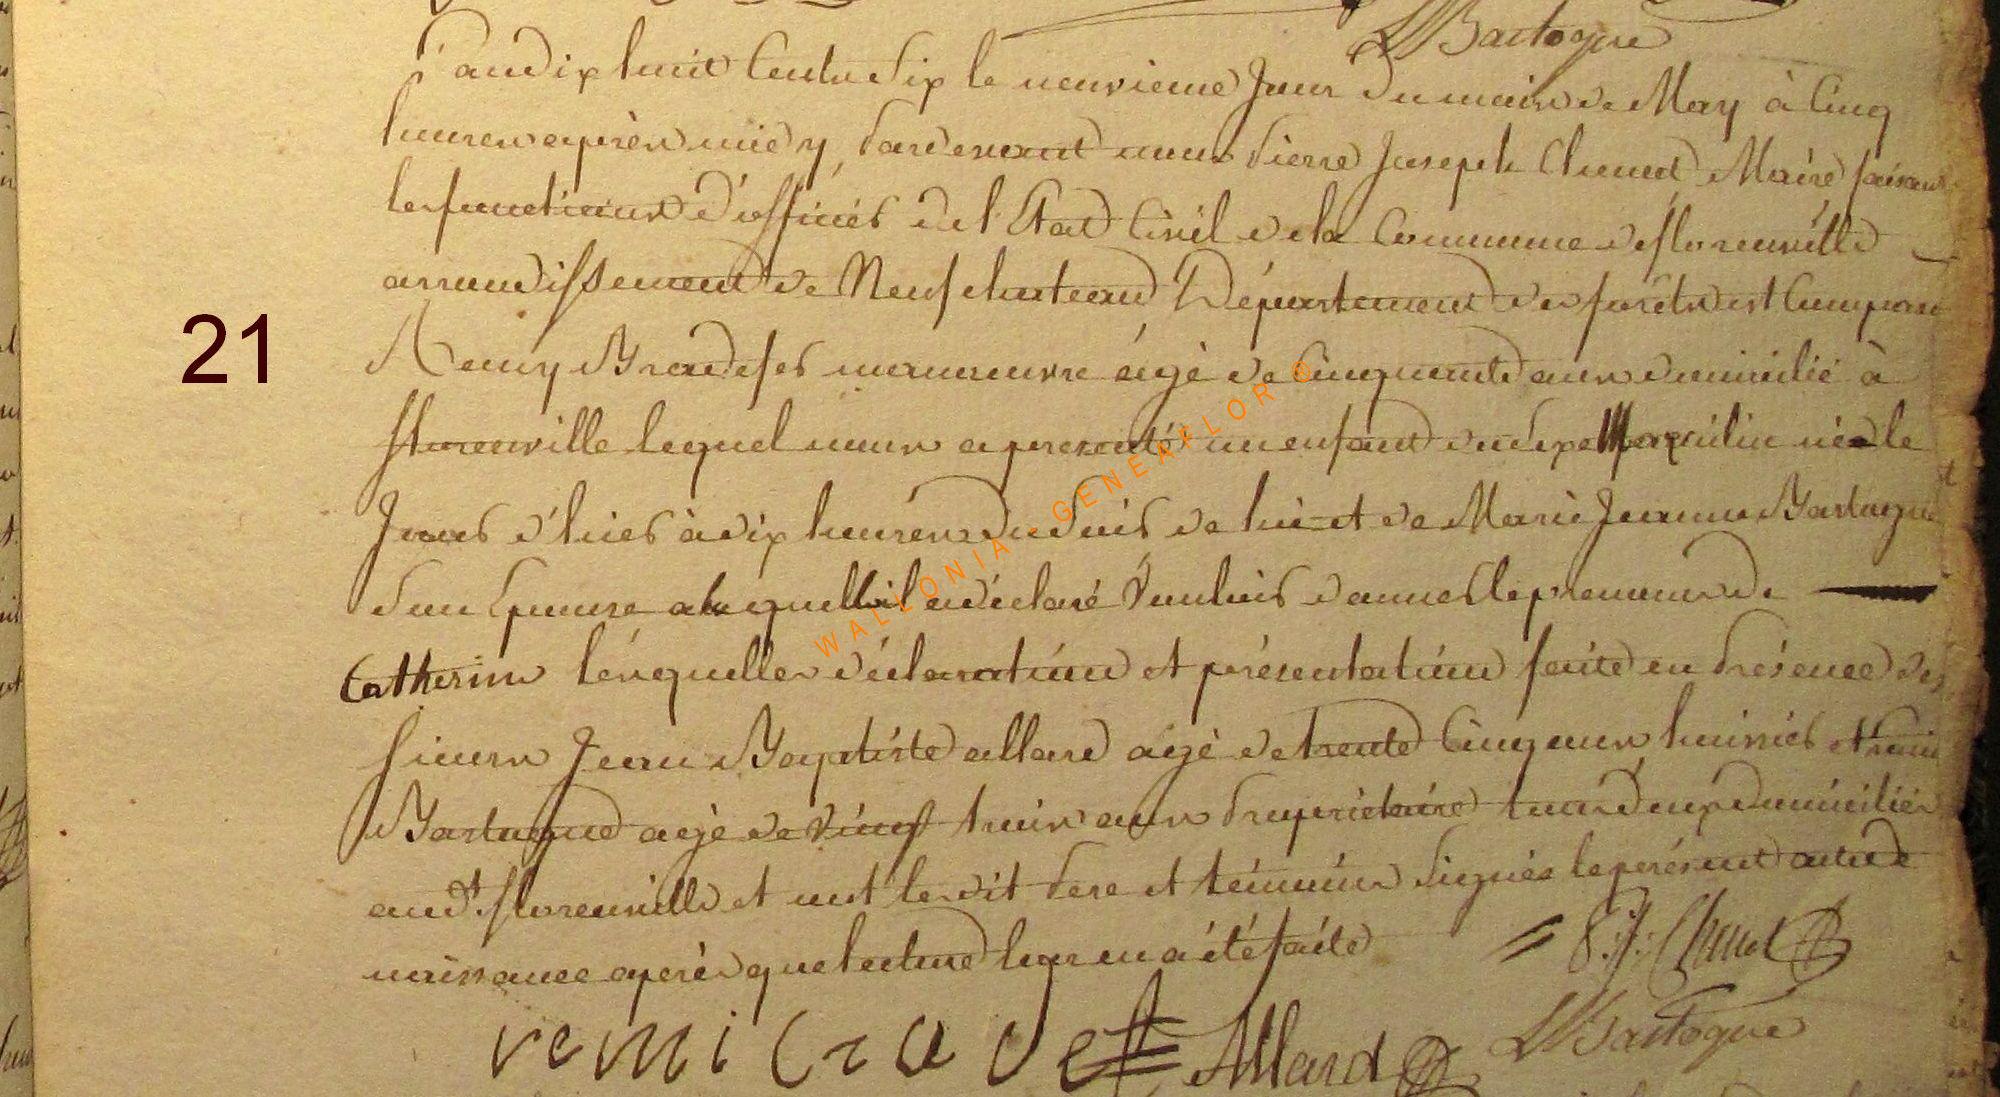 LBastogne
L'an dix huit Cents dix le neuvieme Jour du mois de May à Cinq
heures après midy, Pardevant nous Pierre Joseph Chenet Maire faisant
les fonctions d'officier de l'Etat Civil de la Commune de florenville
arrondissement de Neufchateau Département des forêts est Comparu
Remy manoeuvre agé de Cinquante ans domicilié à
21
florenville lequel nous a presenté un enfant du Sexe Masquilin né le
Jours d'hier à dix heures du Soir de lui et de Marie Jeanne Bastogne
Son Epouse a laquelle il a déclaré Vouloir donner le prenom de
Catherine lesquelles déclaration et présentation faite en Présence des
Sieurs Jean Baptiste allard agé de trente Cinq ans huissier et
Bastogne agé de Vingt trois ans Propriétaire tous deux domiciliés
aud.t florenville et ont lesdit Pere et témoins Signés le présent acte de
naissance après que lecture leur en a été faite
= P. J. Chenet
remi Allard LBastogne
WALLONIA - GENEAFLOR ©